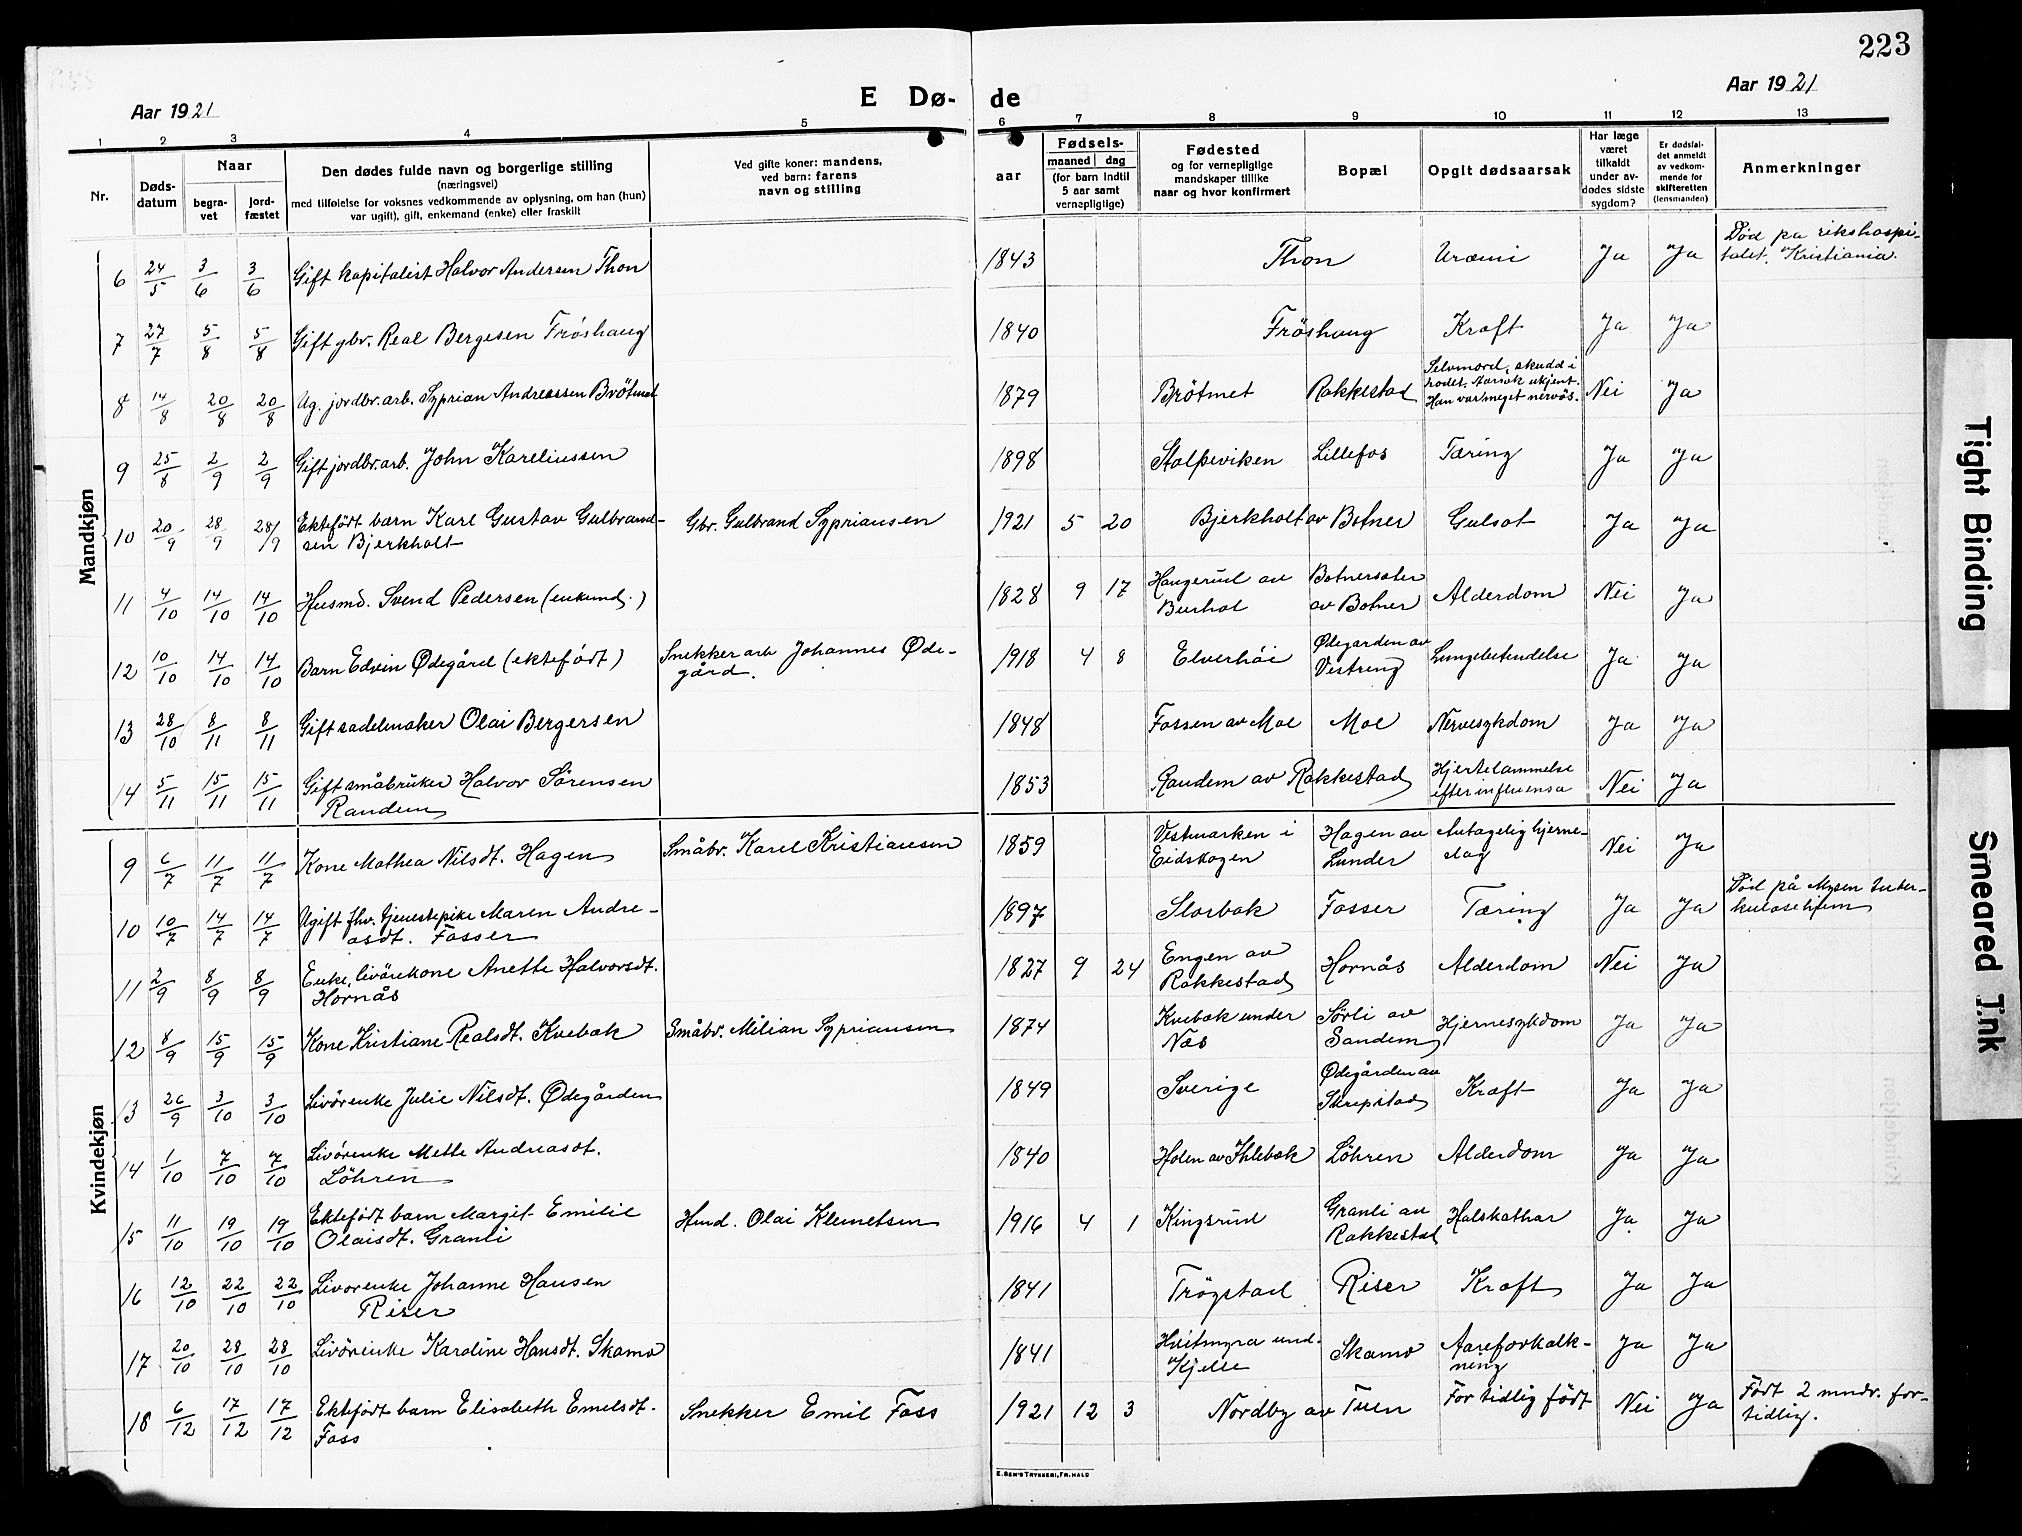 223
Aar 1921
E Dø- de
Aar 1921
1 2 3 4 5 6 7 8 9 10 11 12 13
Nr.
Døds-
datum
Naar
begra-
vet
jord-
fæstet
Den dødes fulde navn og borgerlige stilling
(næringsvei)
med tilføielse for voksnes vedkommende av oplysning, om han (hun)
var ugift), gift, enkemand (enke) eller fraskilt
Ved gifte koner: mandens,
ved barn: farens
navn og stilling
Fødsels-
aar
maaned dag
(for barn indtil
5 aar samt
vernepligtige)
Fødested
og for vernepligtige
mandskaper tillike
naar og hvor konfirmert
Bopæl
Opgit dødsaarsak
Har læge
været
tilkaldt
under av-
dødes sidste
sygdom?
Er dødsfal-
det anmeldt
av vedkom-
mende for
skifteretten
(lensmanden)
Anmerkninger
Mandkjøn
6 24/5 3/6 3/6 Gift kapitalist Halvor Andersen Thon 1843 Thon Uræmi Ja Ja Død pa rikshospi-
talet, Kristiania.
7 27/7 5/8 5/8 Gift gbr. Real Bergesen Frøshaug 1840 Frøshaug Kræft Ja Ja
8 14/8 20/8 20/8 Ug. jordbr. arb. Syprian Andreassen Brøtmet 1879 Brøtmet Rakkestad Selvmord, skudd i
hodet. Aarsak ukjent.
Han var meget nervøs. Nei Ja
9 25/8 2/9 2/9 Gift jordbr. arb. John Kareliussen 1898 Stolpeviken Lillefos Tæring Ja Ja
10 20/9 28/9 28/9 Ektefødt barn Karl Gustav Gulbrand-
sen Bjerkholt Gbr. Gulbrand Sypriansen 1921 5 20 Bjerkholt av Botner Gulsot Ja Ja
11 4/10 14/10 14/10 Husmd. Svend Pedersen (enkemd.) 1828 9 17 Haugerud av
Burhol Botnersæter
av Botner Alderdom Nei Ja
12 10/10 14/10 14/10 Barn Edvin Ødegård (ektefødt) Snekker arb Johannes Øde-
gård. 1918 4 8 Elverhøi Ødegarden av
Vestreng Lungebetendelse Ja Ja
13 28/10 8/11 8/11 Gift sadelmaker Olai Bergersen 1848 Fossen av Moe Moe Nervesykdom Ja Ja
14 5/11 15/11 15/11 Gift småbruker Halvor Sørensen
Randem 1853 Randem av Rakkestad Hjertelammelse
efter influensa Nei Ja
Kvindekjøn
9 6/7 11/7 11/7 Kone Mathea Nilsdt. Hagen Småbr. Karel Kristiansen 1859 Vestmarken i
Eidskogen Hagen av
Lunder Antagelig hjerne-
slag Nei Ja
10 10/7 14/7 14/7 Ugift fhv. tjenestepike Maren Andre-
asdt. Fosser 1897 Slorbak Fosser Tæring Ja Ja Død på Mysen tuber-
kulosehjem
11 2/9 8/9 8/9 Enke, livørekone Anette Halvorsdt.
Hornås 1827 9 24 Engen av
Rakkestad Hornås Alderdom Nei Ja
12 8/9 15/9 15/9 Kone Kristiane Realsdt. Kvebæk Småbr. Milian Sypriansen 1874 Kvebæk under
Næs Sørli av
Sandem Hjernesykdom Ja Ja
13 26/9 3/10 3/10 Livørenke Julie Nilsdt. Ødegården 1849 Sverige Ødegården av
Skrepstad Kræft Ja Ja
14 1/10 7/10 7/10 Livørenke Mette Andreasdt.
Løhren 1840 Holen av Ihlebæk Løhren Alderdom Ja Ja
15 11/10 19/10 19/10 Ektefødt barn Margit Emilie
Olaisdt. Granli Hmd. Olai Klemetsen 1916 4 1 Kingsrud Granli av
Rakkestad Halskathar Ja Ja
16 12/10 22/10 22/10 Livorenke Johanne Hansen
Riser 1841 Trøgstad Riser Kræft Ja Ja
17 20/10 28/10 28/10 Livørenke Karoline Hansdt. Skamo 1841 Hvitmyra und.
Kjelle Skamo Aareforkalk-
ning Ja Ja
18 6/12 17/12 17/12 Ektefødt barn Elisabeth Emilsdt.
Foss Snekker Emil Foss 1921 12 3 Nordby av Tuen For tidlig født Nei Ja Født 2 mndr. for-
tidlig.
E. Sem's Trykkeri, Fr.hald
Tight Binding
Smeared Ink